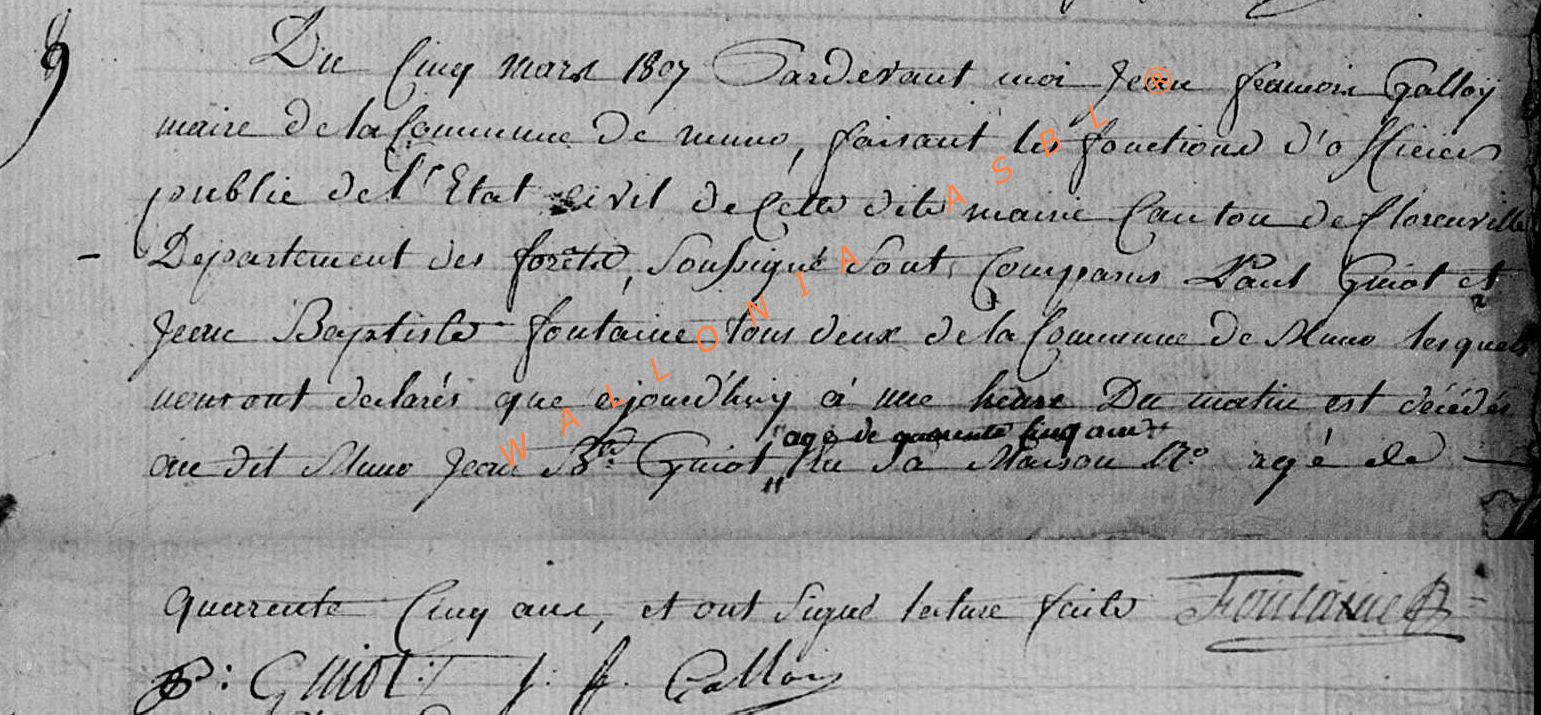 9
Du Cinq mars 1807 Pardevant moi Jean francois Galloy
maire de la Commune de muno, faisant les fonctions d'officier
public de l'Etat civil de Cette dite mairie Canton de florenville
Departement des forêts, soussigné sont Comparus Paul Guiot et
Jean Baptiste fontaine tous deux de la Commune de Muno lesquels
nous ont declarés que ajourd'huy à une heure Du matin est décédés
agé de quarente Cinq ans
au dit Muno Jean Bte Guiot, en sa Maison No agé de
quarente Cinq ans, et ont signé lecture faite Fontaine
P: Guiot: J. f. Galloy
WALLONIA ASBL ®